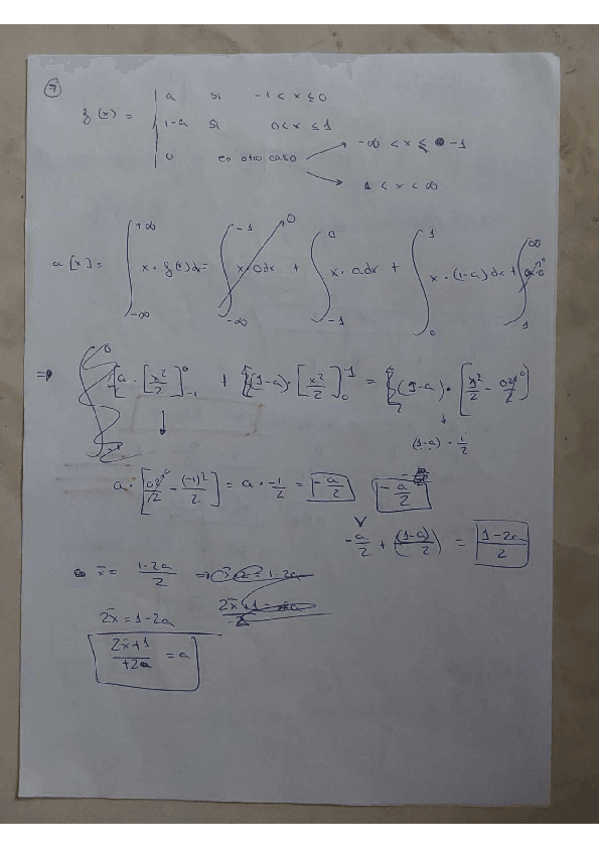 7
f(x) =
a si -1 < x ≤ 0
1-a si 0 < x ≤ 1
0 en otro caso
-∞ < x ≤ -1
1 < x < ∞
a[x] = ∫_{-∞}^{+∞} x · f(x) dx = ∫_{-∞}^{-1} x·0dx + ∫_{-1}^{0} x · adx + ∫_{0}^{1} x · (1-a) dx + ∫_{1}^{∞}
⇒ [a · [x²/2]_{-1}^{0} + [(1-a) · [x²/2]_{0}^{1} = (1-a) · [x²/2 - 0²/2]
(1-a) · 1/2
a · [0²/2 - (-1)²/2] = a · -1/2 = -a/2 -a/2
-a/2 + (1-a)/2 = 1-2a/2
x̄ = 1-2a/2 ⇒
2x̄ = 1-2a
2x̄+1/+2 = a